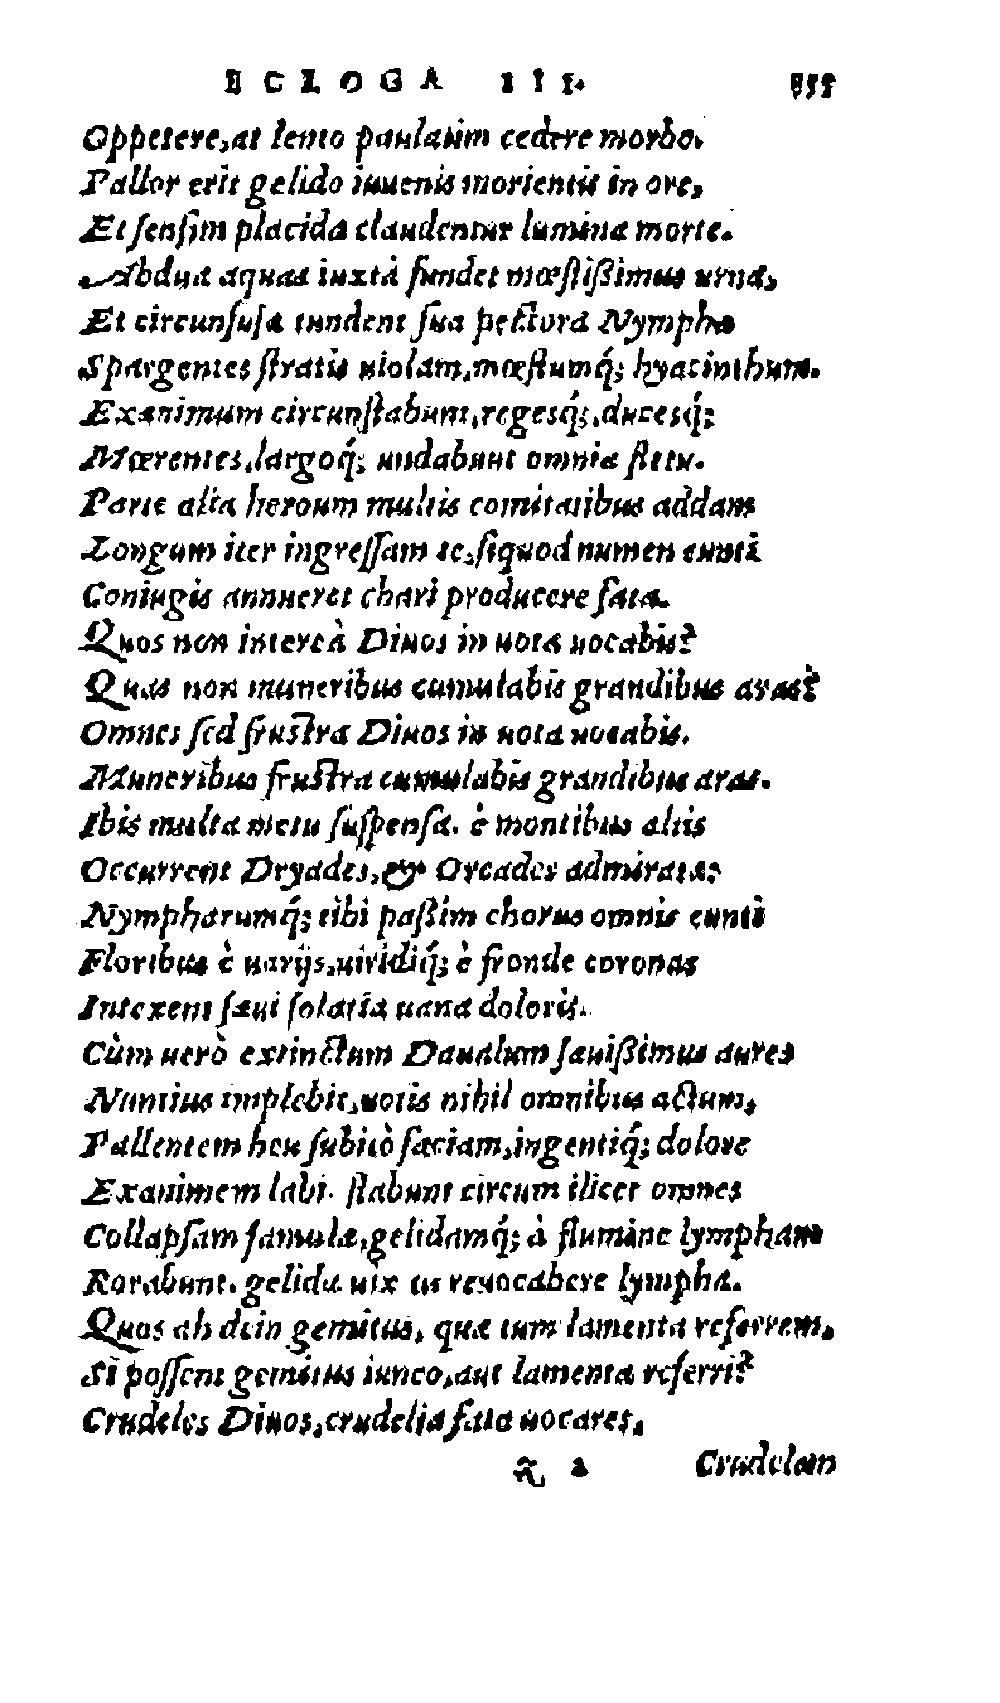 ECLOGA III.
Oppetere, at lento paulatim cedere morbo.
Pallor erit gelido iuuenis morientis in ore,
Et sensim placida claudentur lumina morte.
Abdua aquas iuxtà fundet mœstißimus urna,
Et circunfusæ tundent sua pectora Nymphæ
Spargentes stratis uiolam, mœstumq́; hyacinthum.
Exanimum circunstabunt, regesq́;, ducesq́;
Mœrentes, largoq́; undabunt omnia fletu.
Parte alia heroum multis comitatibus addam
Longum iter ingressam te, siquod numen eunti
Coniugis annueret chari producere fata.
Quos non intereà Diuos in uota uocabis?
Quas non muneribus cumulabis grandibus aras?
Omnes sed frustra Diuos in uota uocabis.
Muneribus frustra cumulabis grandibus aras.
Ibis multa metu suspensa. è montibus altis
Occurrent Dryades, & Oreades admiratæ:
Nympharumq́; tibi paßim chorus omnis eunti
Floribus è uarijs, uiridiq́; è fronde coronas
Intexent sæui solatia uana doloris.
Cùm uerò extinctum Daualum sæuißimus aures
Nuntius implebit, uotis nihil omnibus actum,
Pallentem heu subitò faciam, ingentiq́; dolore
Exanimem labi. stabunt circum ilicet omnes
Collapsam famulæ, gelidamq́; à flumine lympham
Rorabunt. gelida uix tu reuocabere lympha.
Quos ah dein gemitus, quæ tum lamenta referrem,
Si possent gemitus iunco, aut lamenta referri?
Crudeles Diuos, crudelia fata uocares,
Crudelem